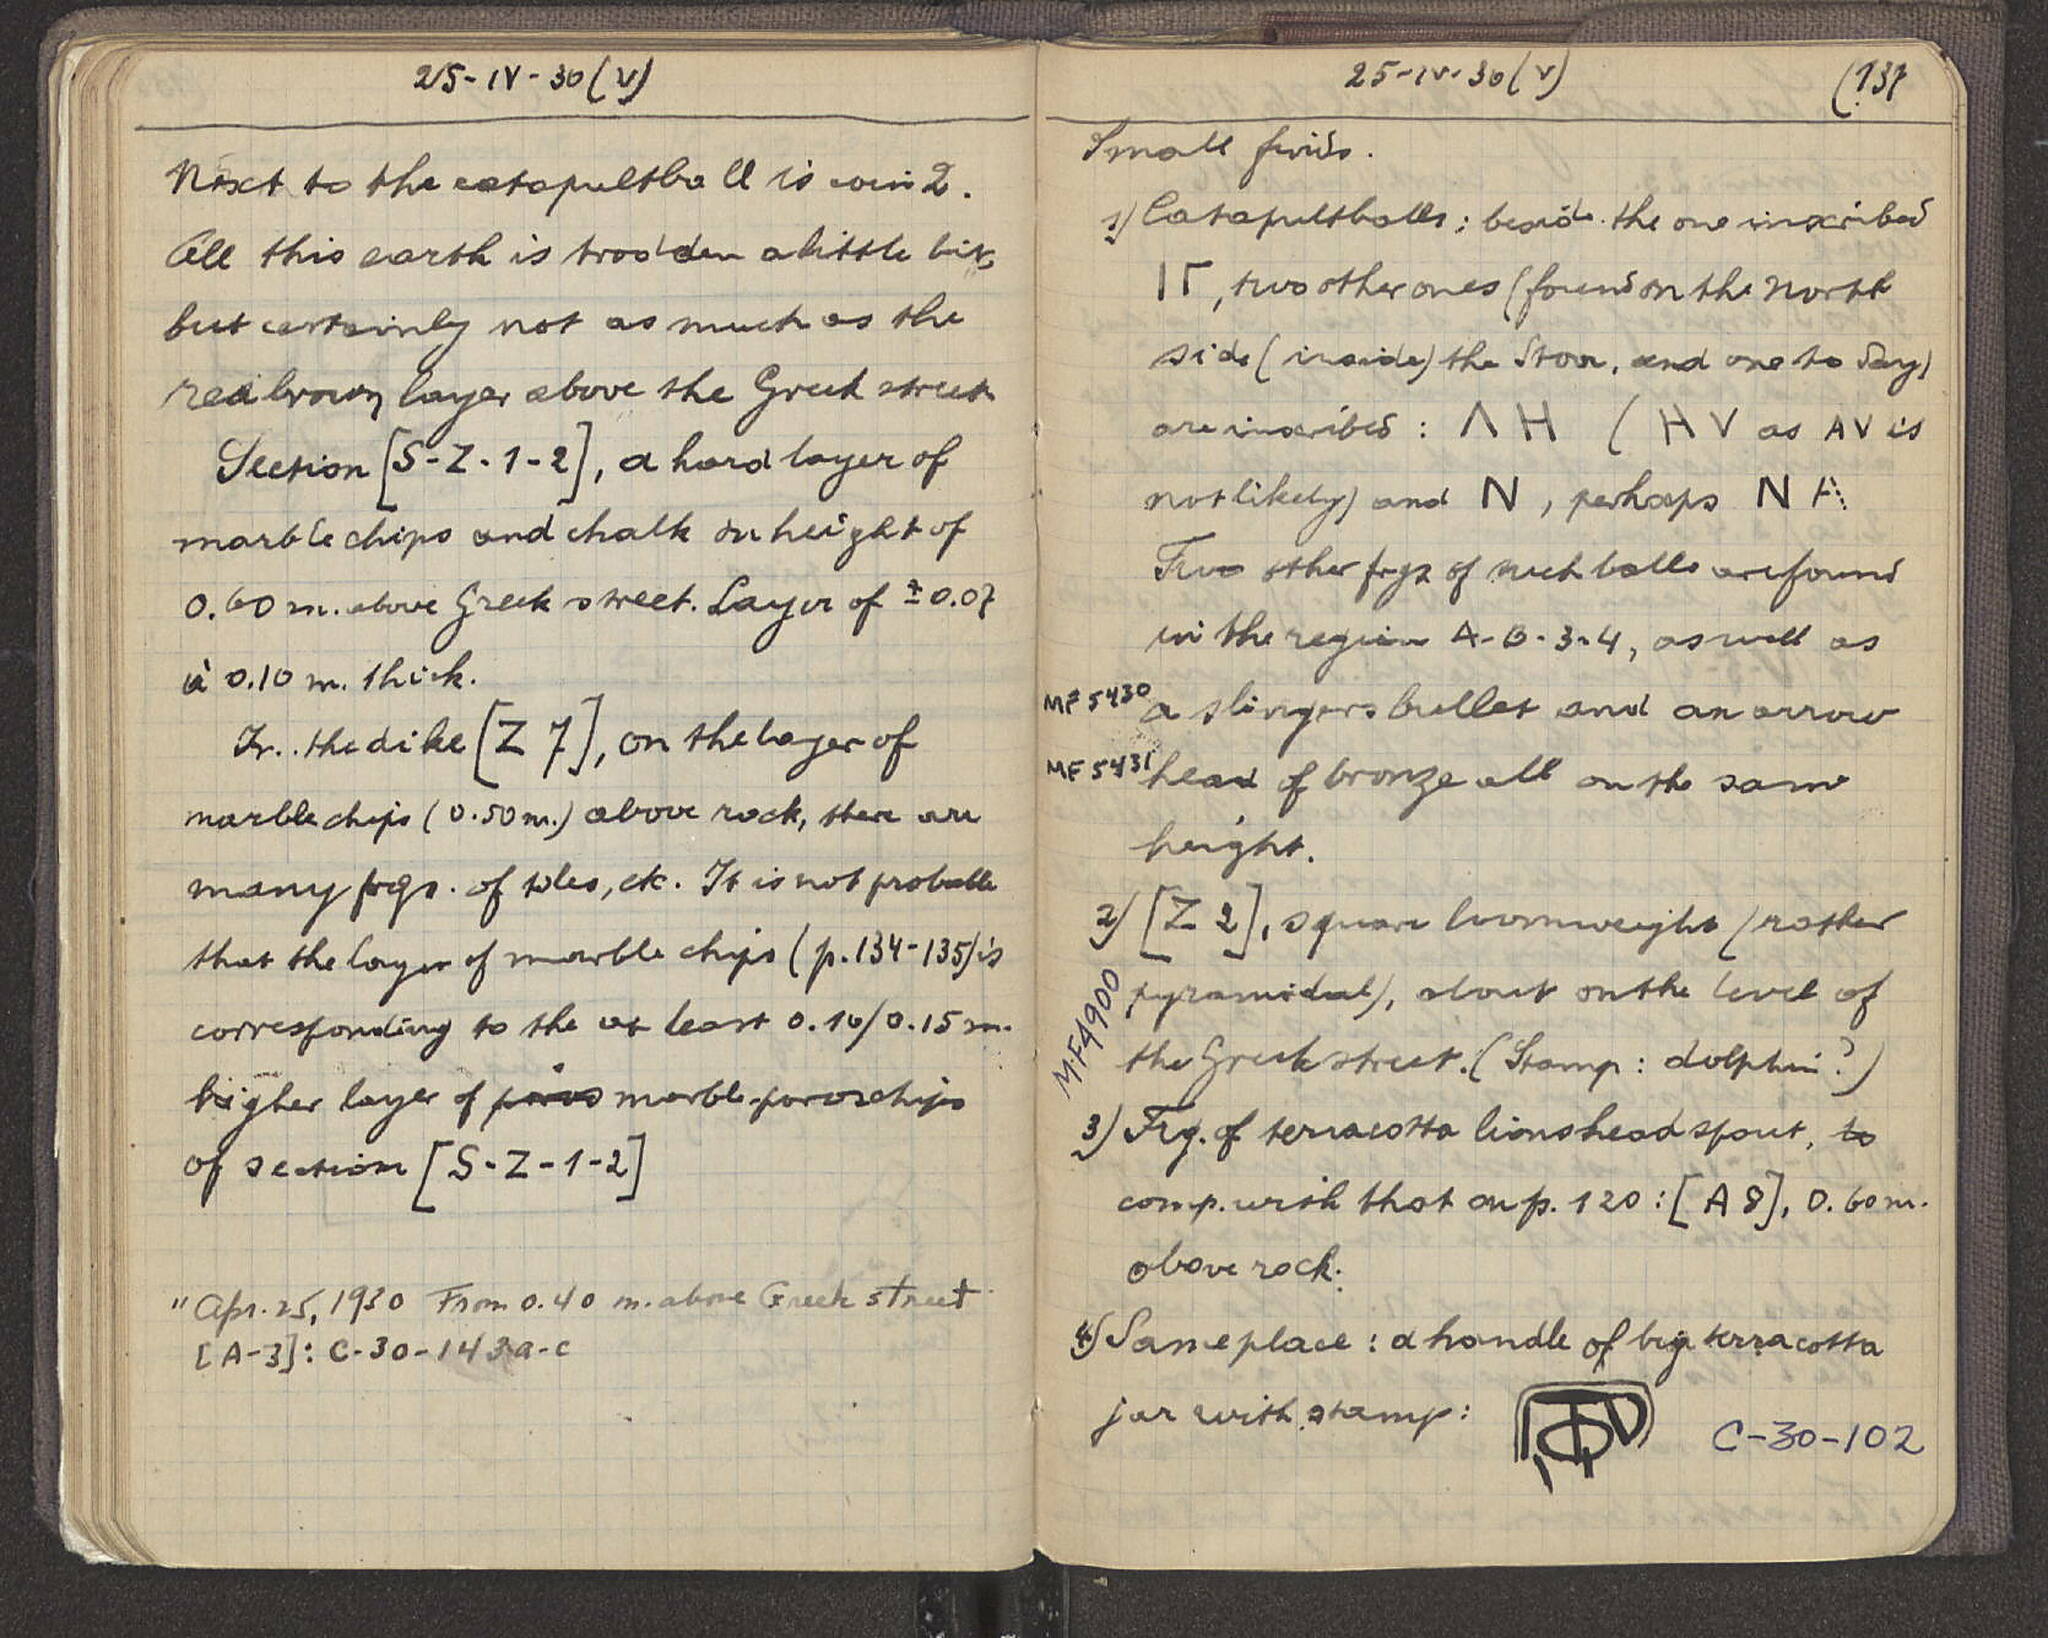 25-IV-30 (V)
Next to the catapultball is coin 2.
All this earth is trodden a little bit,
but certainly not as much as the
red brown layer above the Greek street.
Section [S-Z-1-2], a hard layer of
marble chips and chalk on height of
0.60 m. above Greek street. Layer of ± 0.07
à 0.10 m. thick.
In the dike [Z 7], on the layer of
marble chips (0.50 m.) above rock, there are
many frgs. of tiles, etc. It is not probable
that the layer of marble chips (p. 134-135) is
corresponding to the at least 0.10/0.15 m.
higher layer of poros marble-poros chips
of section [S-Z-1-2]
" Apr. 25, 1930 From 0.40 m. above Greek street
[A-3]: C-30-143a-c
25-IV-30 (V) (137
Small finds.
1) Catapultballs; beside the one inscribed
ΙΓ, two other ones (found on the North
side (inside) the Stoa, and one to day)
are inscribed: ΛΗ (HV as AV is
not likely) and N, perhaps N
Two other frgs of such balls are found
in the region A-B-3-4, as well as
MF 5430 a slingersbullet and an arrow
MF 5431 head of bronze all on the same
height.
2) [Z 2], square loomweight (rather
pyramidal), about on the level of
MF4900
the Greek street. (Stamp: dolphin?)
3) Frg. of terracotta lionshead spout, to
comp. with that on p. 120: [A 8], 0.60 m.
above rock.
4) Same place: a handle of big terracotta
jar with stamp: C-30-102